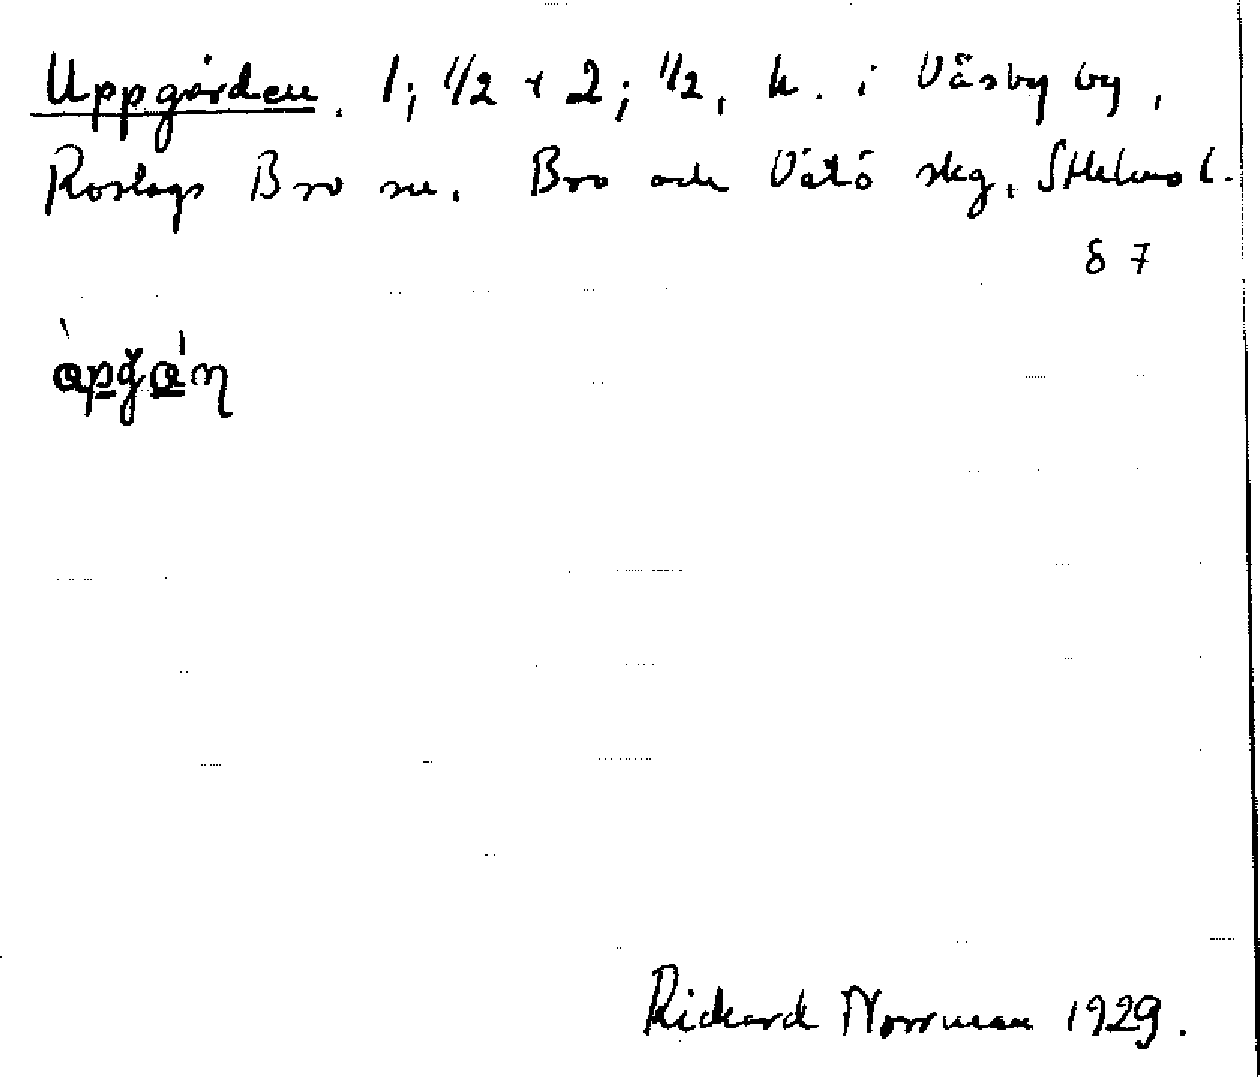 Uppgården. 1; 1/2 + 2; 1/2, h. i Väsby by,
Roslags Bro sn. Bro och Vätö skg, Sthlms l.
87
Rickard Norrman 1929.